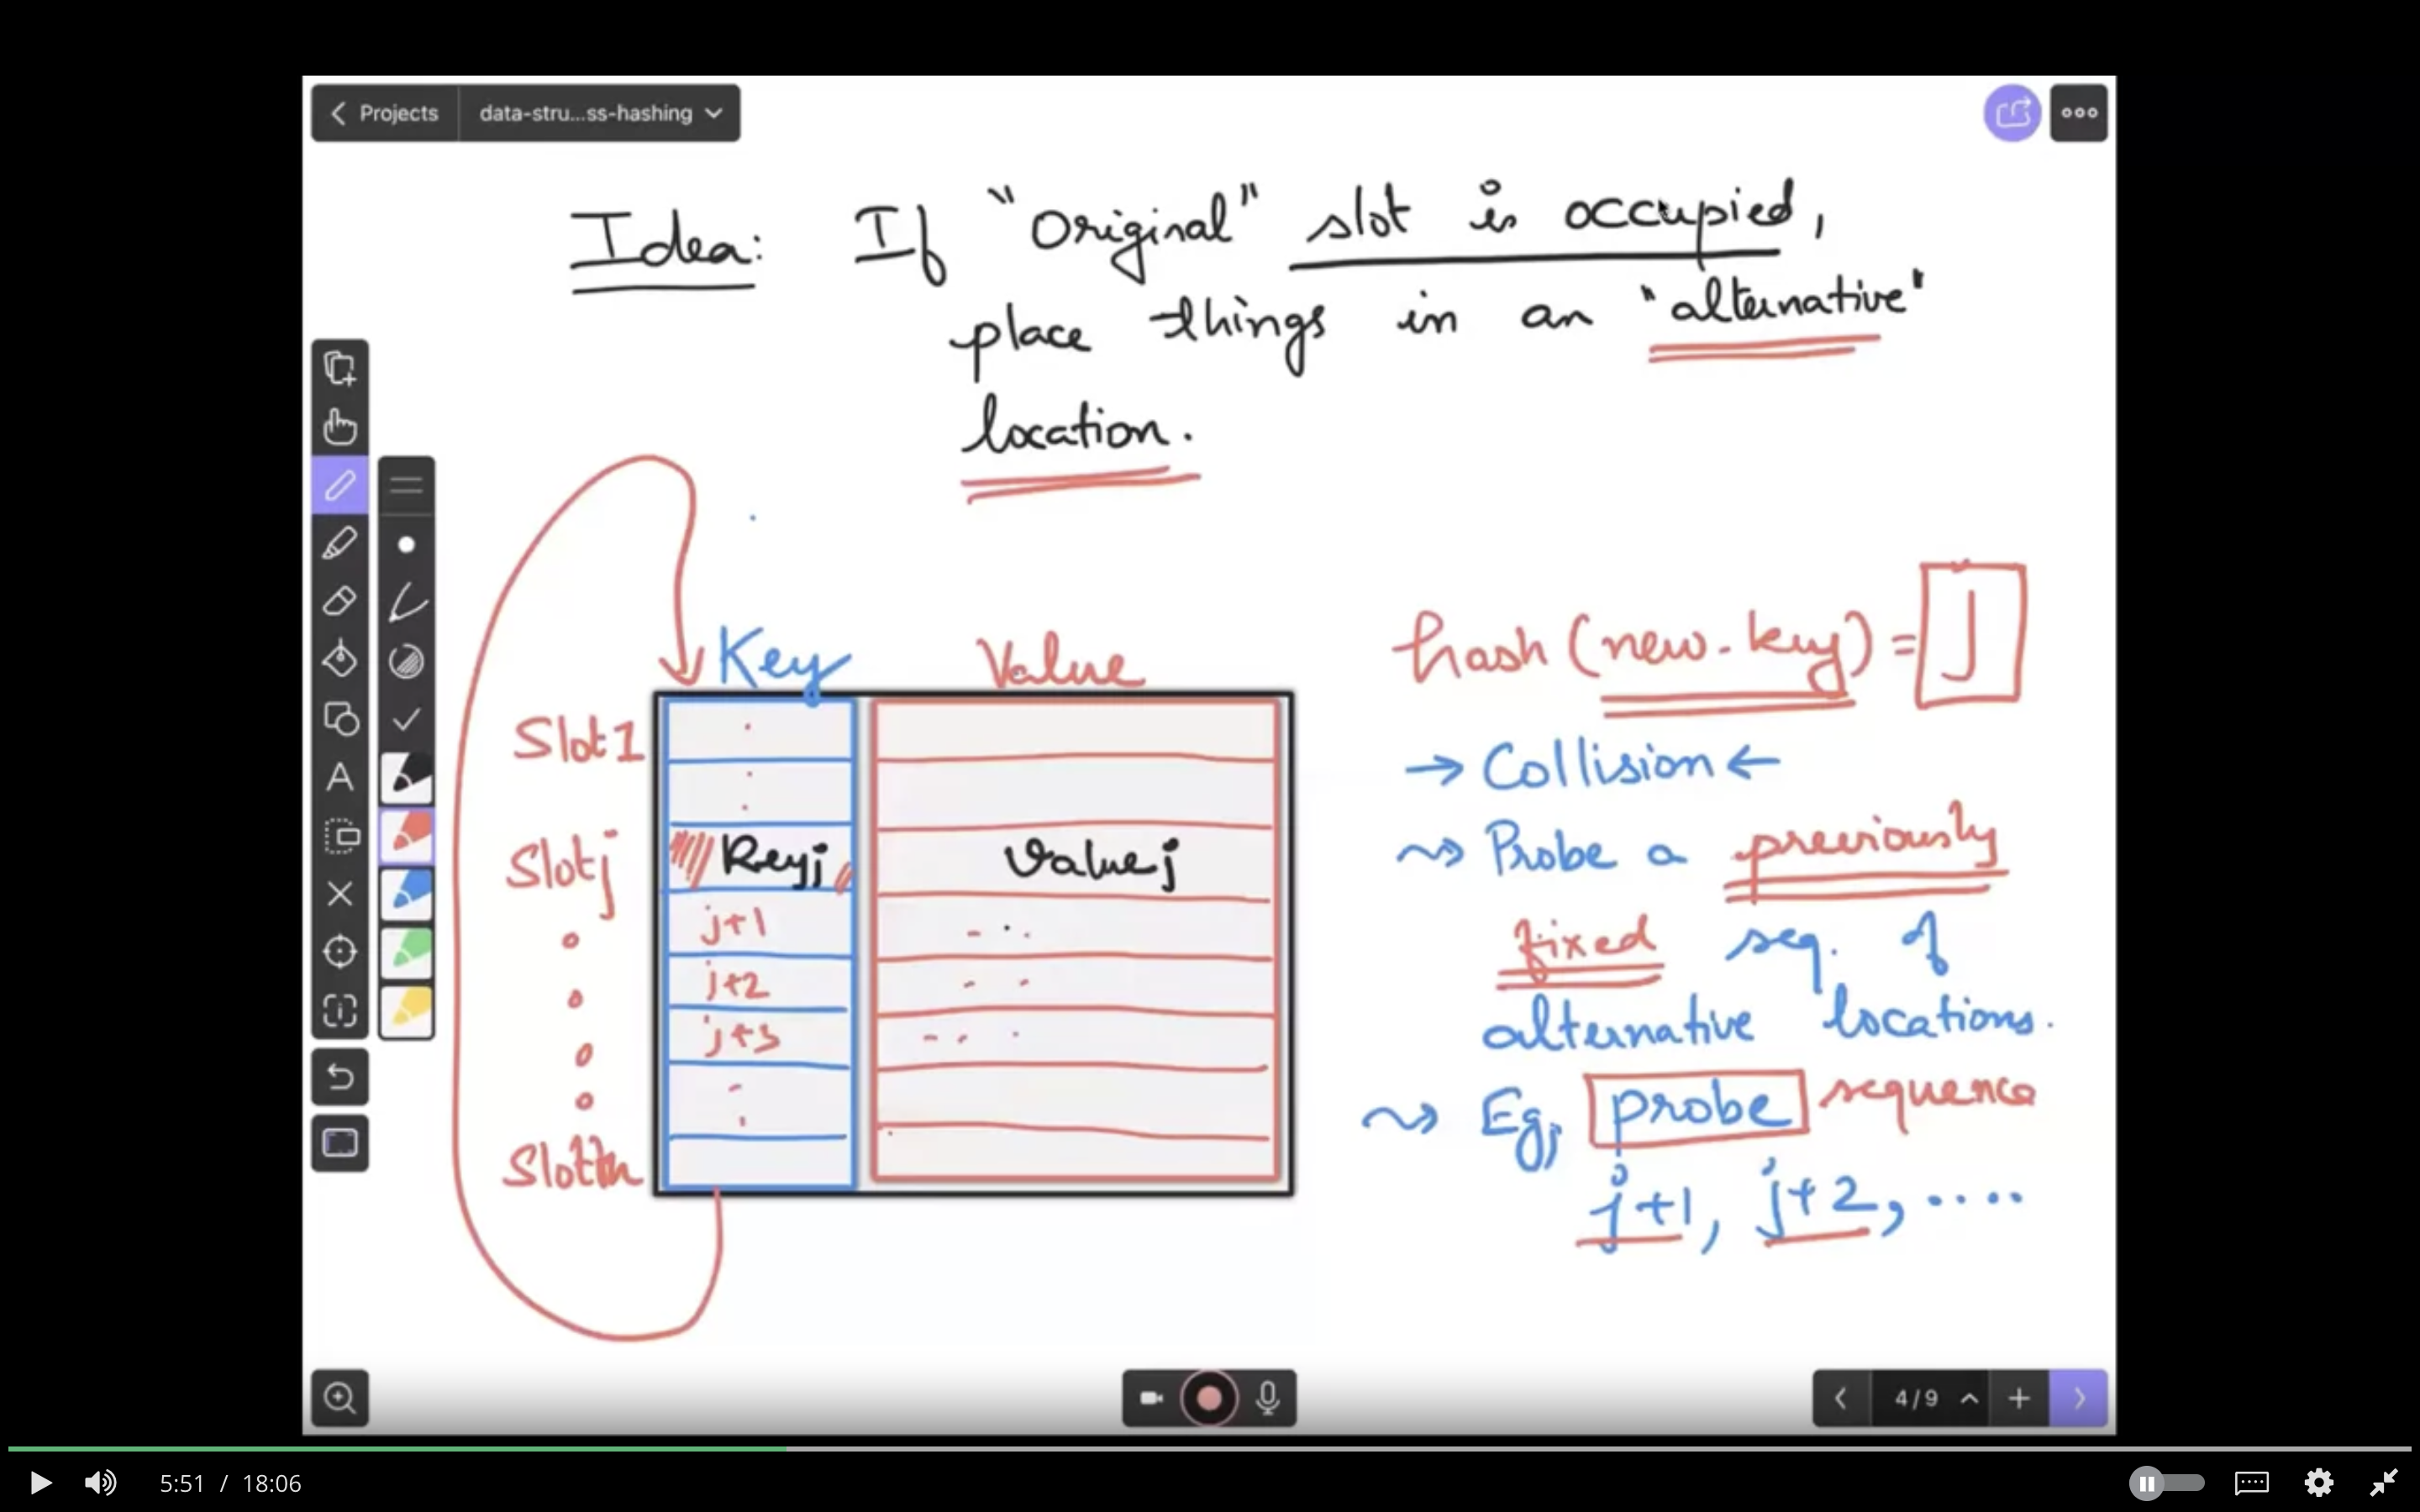 Projects data-stru...ss-hashing
Idea: If "Original" slot is occupied,
place things in an "alternative"
location.
Key Value
Slot 1
Slot j Key j Value j
j+1
j+2
j+3
Slot m
hash (new-key) = j
→ Collision ←
Probe a previously
fixed seq. of
alternative locations.
Eg, probe sequence
j+1, j+2, ....
4/9
5:51 / 18:06